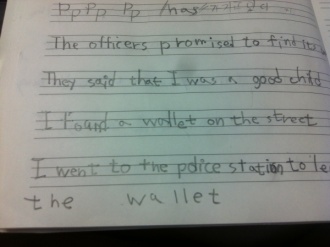 Pp Pp Pp
The officers promised to find it
They said that I was a good child
I found a wallet on the street
I went to the police station to le
the wallet